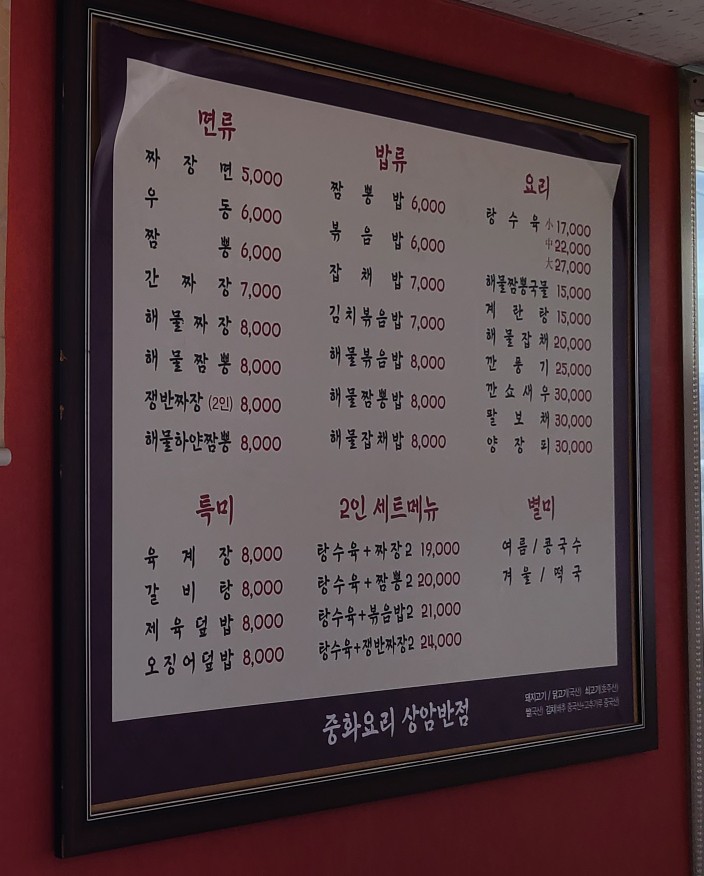 면류
짜장면 5,000
우동 6,000
짬뽕 6,000
간짜장 7,000
해물짜장 8,000
해물짬뽕 8,000
쟁반짜장 (2인) 8,000
해물하얀짬뽕 8,000
밥류
짬뽕밥 6,000
볶음밥 6,000
잡채밥 7,000
김치볶음밥 7,000
해물볶음밥 8,000
해물짬뽕밥 8,000
해물잡채밥 8,000
요리
탕수육 小 17,000
中 22,000
大 27,000
해물짬뽕국물 15,000
계란탕 15,000
해물잡채 20,000
깐풍기 25,000
깐쇼새우 30,000
팔보채 30,000
양장피 30,000
특미
육계장 8,000
갈비탕 8,000
제육덮밥 8,000
오징어덮밥 8,000
2인 세트메뉴
탕수육+짜장2 19,000
탕수육+짬뽕2 20,000
탕수육+볶음밥2 21,000
탕수육+쟁반짜장2 24,000
별미
여름/콩국수
겨울/떡국
중화요리 상암반점
돼지고기/닭고기(국산) 쇠고기(호주산)
쌀(국산) 김치(배추 중국산+고추가루 중국산)